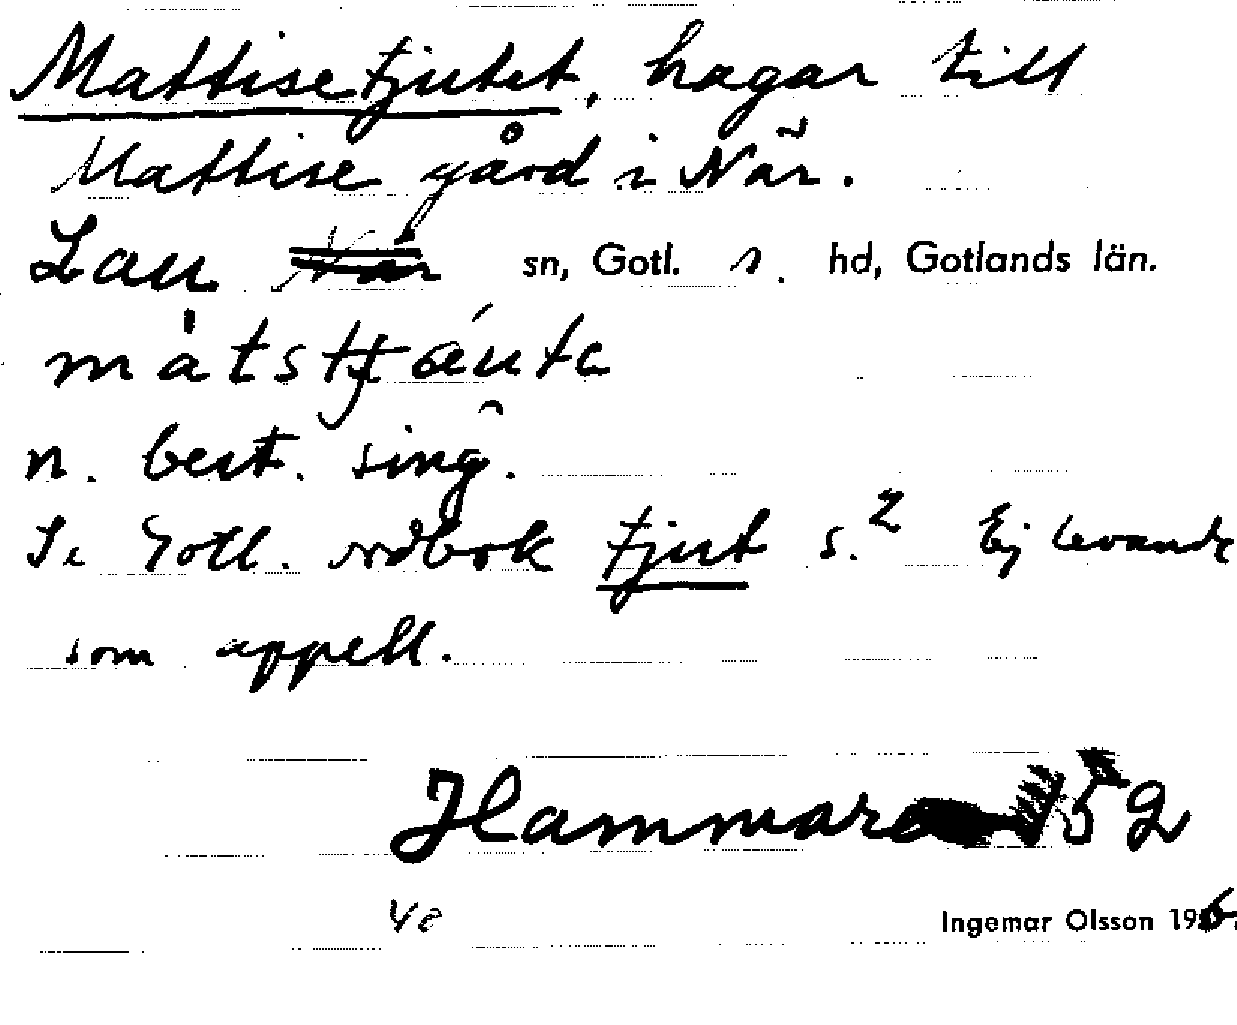 Mattisetjutet, hagar till
Mattise gård i När.
Lau När sn, Gotl. s. hd, Gotlands län.
n. best. sing.
Se Gotl. ordbok tjut s.2 Ej levande
som appell.
Hammaren 152
48
Ingemar Olsson 196